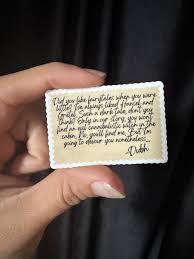 Did you like fairytales when you were
little? I've always liked Hansel and
Gretel. Such a dark tale, don't you
think? Only in our story, you won't
find an evil cannibalistic witch in the
cabin. No, you'll find me. But I'm
going to devour you nonetheless.